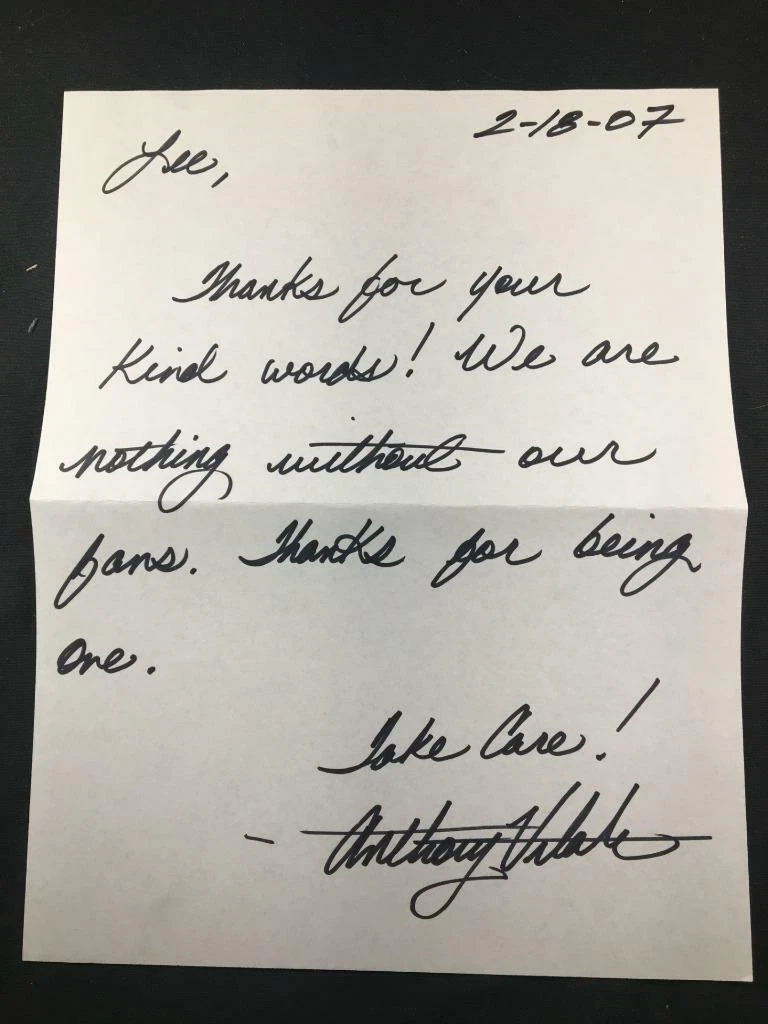 2-18-07
Lee,
Thanks for your
Kind words! We are
nothing without our
fans. Thanks for being
one.
Take Care!
- Anthony